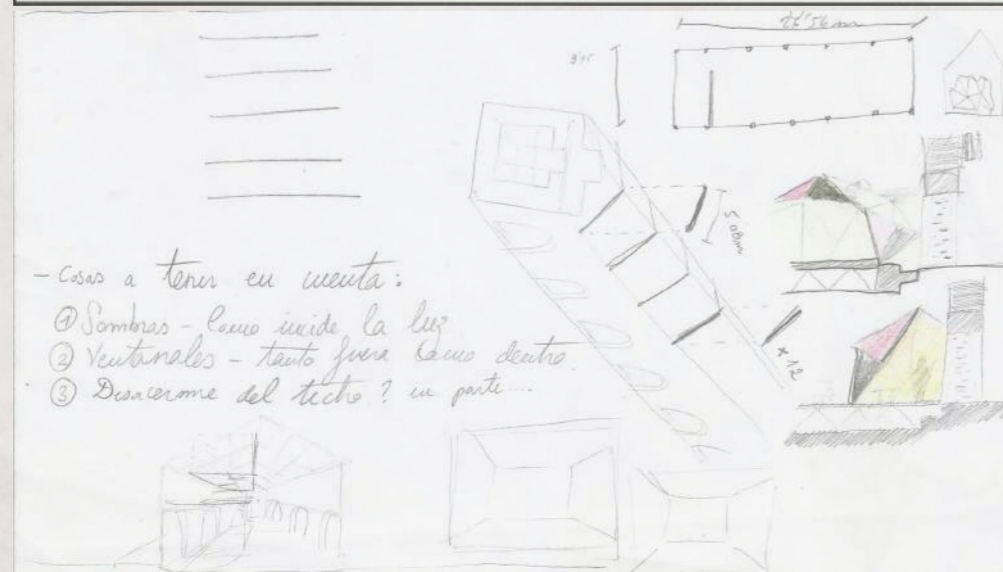 - Cosas a tener en cuenta:
① Sombras - Como incide la luz
② Ventanales - tanto fuera como dentro.
③ Desacerme del techo? en parte...
5'08m
x 12